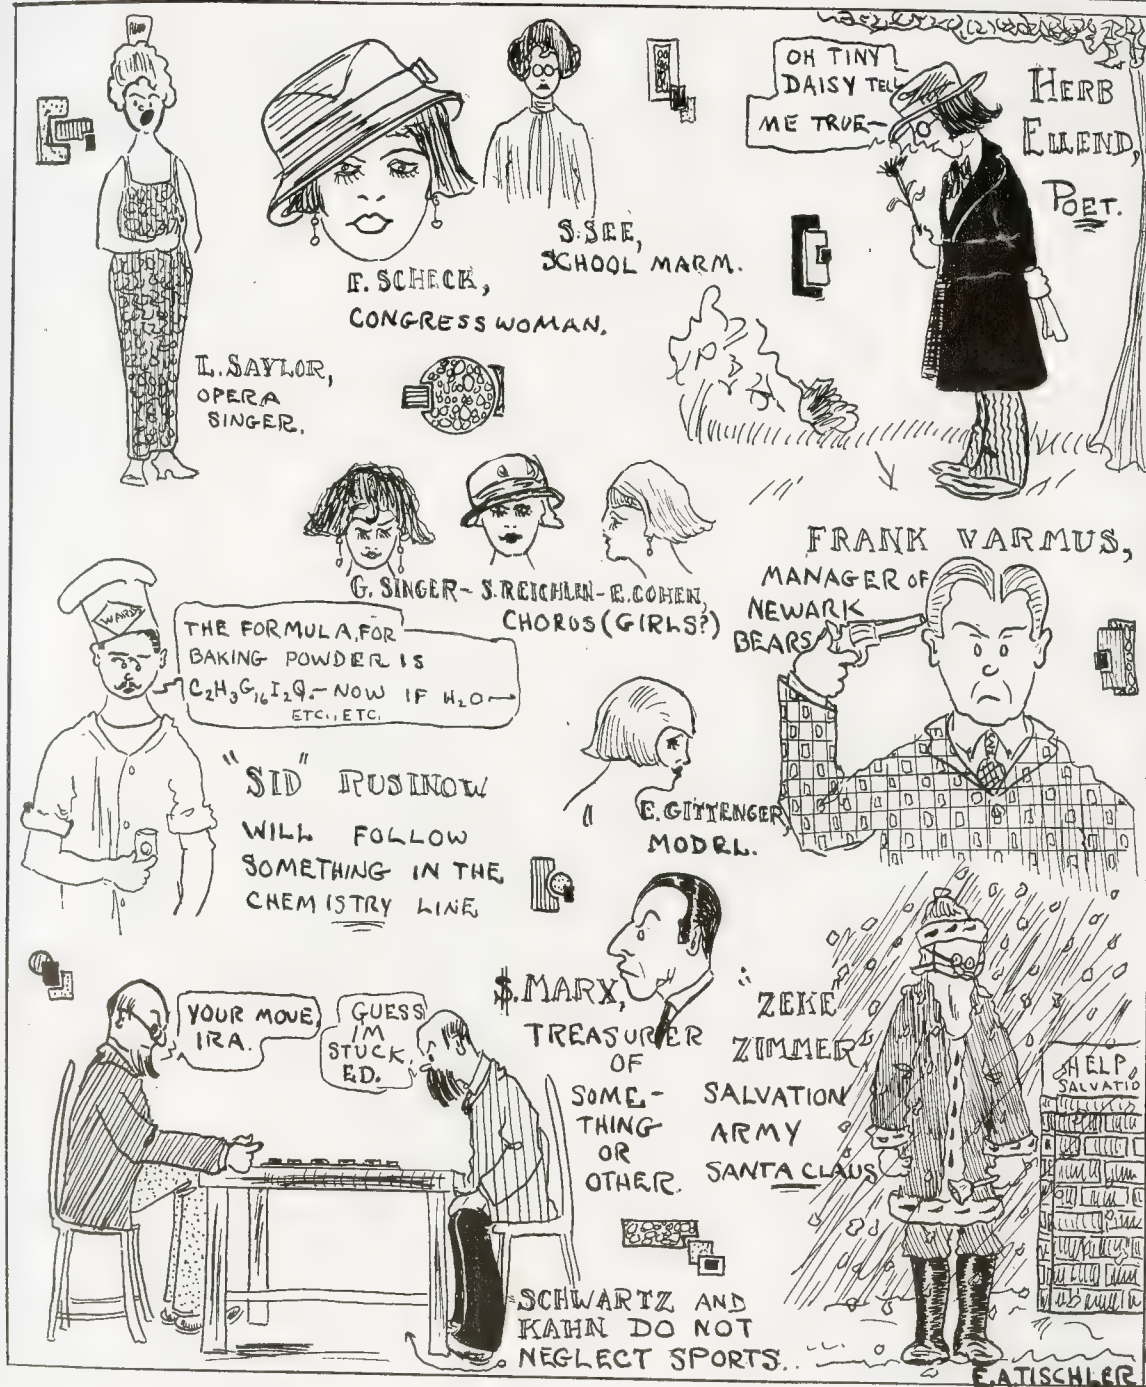 L. SAYLOR,
OPERA
SINGER.
F. SCHECK,
CONGRESS WOMAN.
S. SEE,
SCHOOL MARM.
OH TINY
DAISY TELL
ME TRUE—
HERB
ELLEND,
POET.
G. SINGER - S. REICHLIN - E. COHEN,
CHORUS (GIRLS?)
FRANK VARMUS,
MANAGER OF
NEWARK
BEARS
WARD'S
THE FORMULA, FOR
BAKING POWDER IS
C₂H₃G₁₆I₂Q.— NOW IF H₂O—
ETC., ETC.
"SID" RUSINOW
WILL FOLLOW
SOMETHING IN THE
CHEMISTRY LINE
E. GITTENGER,
MODEL.
$. MARX,
TREASURER
OF
SOME-
THING
OR
OTHER.
"ZEKE"
ZIMMER
SALVATION
ARMY
SANTA CLAUS
HELP,
SALVATIO
YOUR MOVE,
IRA.
GUESS
I'M
STUCK,
ED.
SCHWARTZ AND
KAHN DO NOT
NEGLECT SPORTS..
E.A.TISCHLER